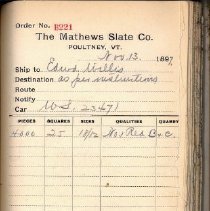 Order No. B221
The Mathews Slate Co.
POULTNEY, VT.
Nov 13. 1897
Ship to Edwd Willis
Destination as per instructions
Route
Notify
Car W.S. 23471
PIECES SQUARES SIZES QUALITIES QUANTITY
4000 25 18/12 No 1 Red B & C